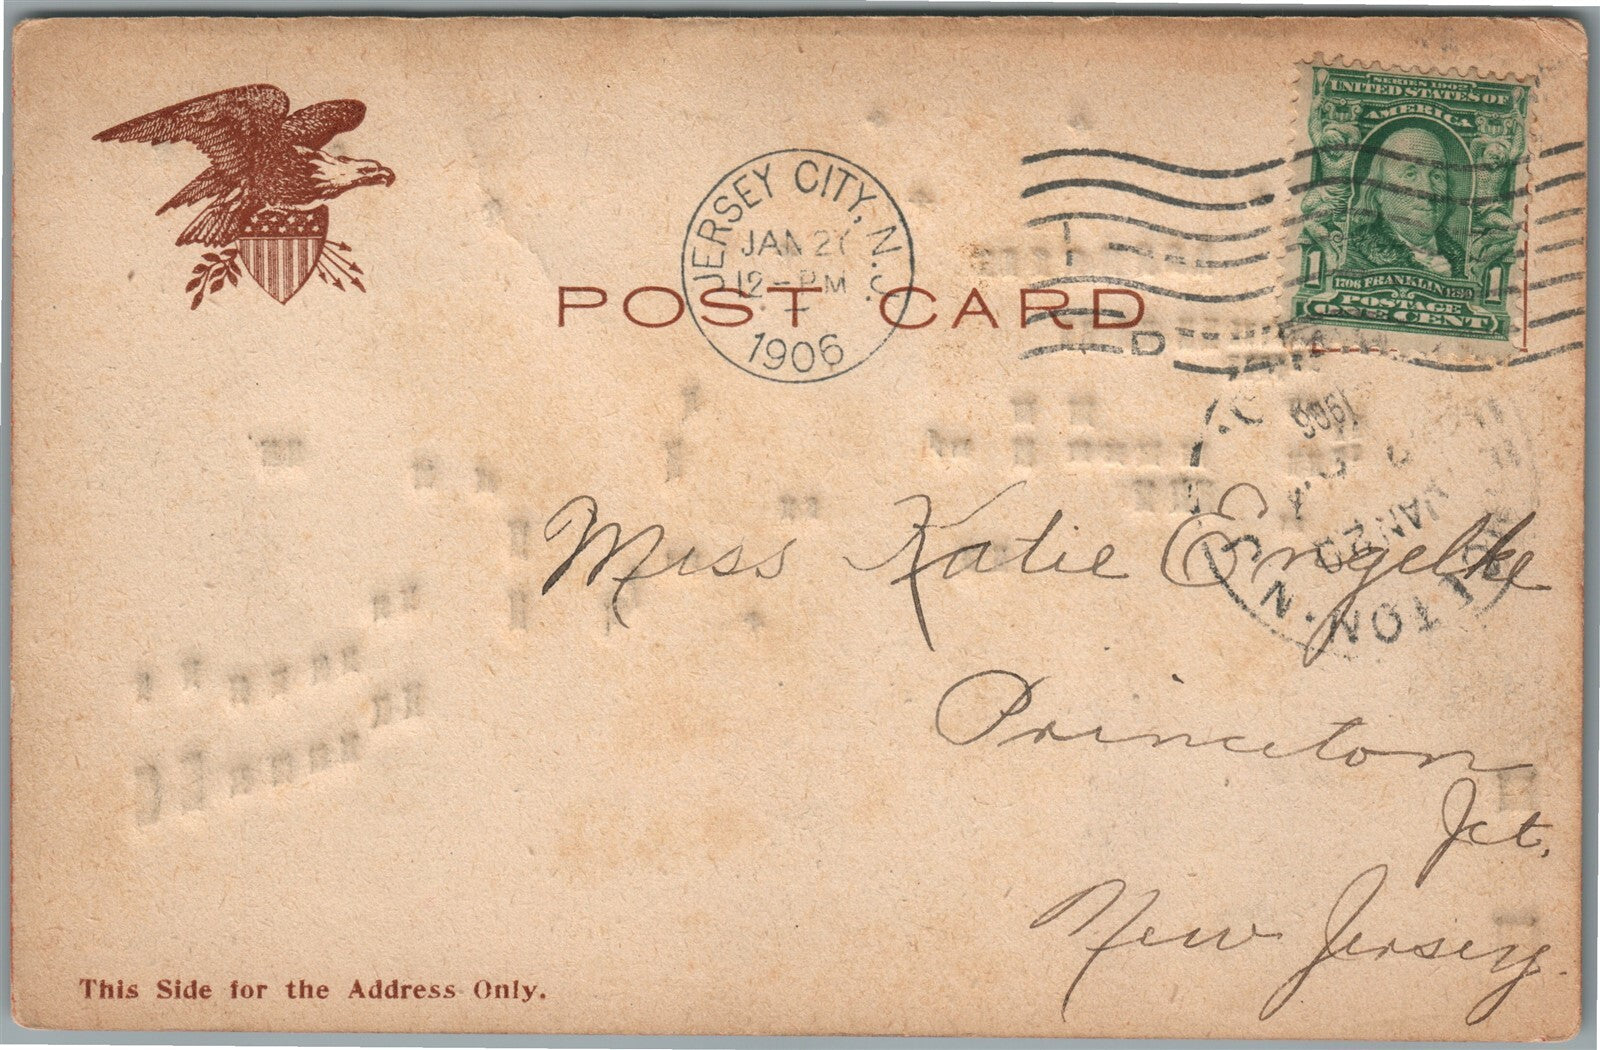 SERIES 1902
UNITED STATES OF
AMERICA
1 1
1706 FRANKLIN 1790
POSTAGE
ONE CENT
JERSEY CITY, N.J.
JAN 2
12 - PM
1906
POST CARD
D
1906
JAN 20
TON N.
Miss Katie Engelke
Princeton
Jct.
New Jersey.
This Side for the Address Only.